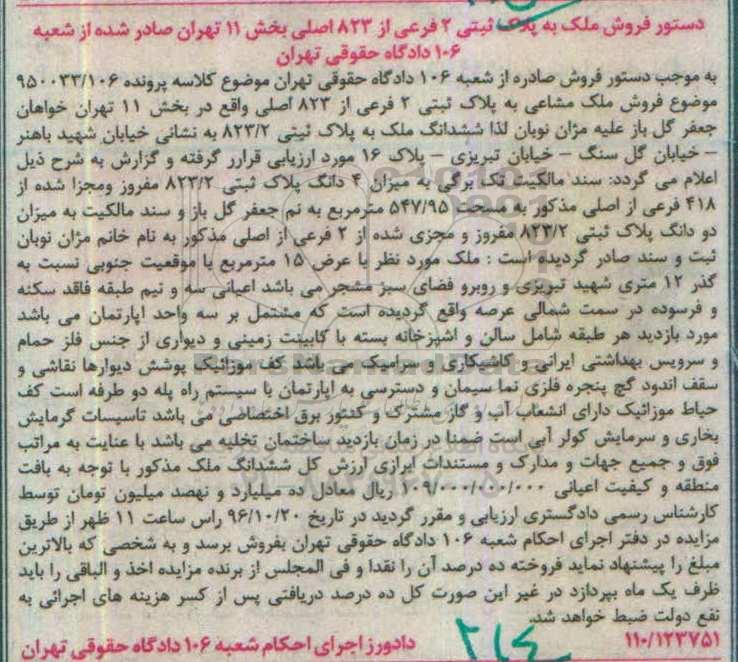 دستور فروش ملک به پلاک ثبتی ۲ فرعی از ۸۲۳ اصلی بخش ۱۱ تهران صادر شده از شعبه
۱۰۶ دادگاه حقوقی تهران
به موجب دستور فروش صادره از شعبه ۱۰۶ دادگاه حقوقی تهران موضوع کلاسه پرونده ۹۵۰۰۳۳/۱۰۶
موضوع فروش ملک مشاعی به پلاک ثبتی ۲ فرعی از ۸۲۳ اصلی واقع در بخش ۱۱ تهران خواهان
جعفر گل باز علیه مژان نوبان لذا ششدانگ ملک به پلاک ثبتی ۸۲۳/۲ به نشانی خیابان شهید باهنر
– خیابان گل سنگ – خیابان تبریزی – پلاک ۱۶ مورد ارزیابی قرارر گرفته و گزارش به شرح ذیل
اعلام می گردد: سند مالکیت تک برگی به میزان ۴ دانگ پلاک ثبتی ۸۲۳/۲ مفروز ومجزا شده از
۴۱۸ فرعی از اصلی مذکور به مسحت ۵۴۷/۹۵ مترمربع به نم جعفر گل باز و سند مالکیت به میزان
دو دانگ پلاک ثبتی ۸۲۳/۲ مفروز و مجزی شده از ۲ فرعی از اصلی مذکور به نام خانم مژان نوبان
ثبت و سند صادر گردیده است : ملک مورد نظر با عرض ۱۵ مترمربع با موقعیت جنوبی نسبت به
گذر ۱۲ متری شهید تبریزی و روبرو فضای سبز مشجر می باشد اعیانی سه و نیم طبقه فاقد سکنه
و فرسوده در سمت شمالی عرصه واقع گردیده است که مشتمل بر سه واحد اپارتمان می باشد
مورد بازدید هر طبقه شامل سالن و اشپزخانه بسته با کابینت زمینی و دیواری از جنس فلز حمام
و سرویس بهداشتی ایرانی و کاشیکاری و سرامیک می باشد کف موزائیک پوشش دیوارها نقاشی و
سقف اندود گچ پنجره فلزی نما سیمان و دسترسی به اپارتمان با سیستم راه پله دو طرفه است کف
حیاط موزائیک دارای انشعاب آب و گاز مشترک و کنتور برق اختصاصی می باشد تاسیسات گرمایش
بخاری و سرمایش کولر آبی است ضمنا در زمان بازدید ساختمان تخلیه می باشد با عنایت به مراتب
فوق و جمیع جهات و مدارک و مستندات ابرازی ارزش کل ششدانگ ملک مذکور با توجه به بافت
منطقه و کیفیت اعیانی ۱۰۹/۰۰۰/۰۰۰/۰۰۰ ریال معادل ده میلیارد و نهصد میلیون تومان توسط
کارشناس رسمی دادگستری ارزیابی و مقرر گردید در تاریخ ۹۶/۱۰/۲۰ راس ساعت ۱۱ ظهر از طریق
مزایده در دفتر اجرای احکام شعبه ۱۰۶ دادگاه حقوقی تهران بفروش برسد و به شخصی که بالاترین
مبلغ را پیشنهاد نماید فروخته ده درصد آن را نقدا و فی المجلس از برنده مزایده اخذ و الباقی را باید
ظرف یک ماه بپردازد در غیر این صورت کل ده درصد دریافتی پس از کسر هزینه های اجرائی به
نفع دولت ضبط خواهد شد.
۱۱۰/۱۲۳۷۵۱ دادورز اجرای احکام شعبه ۱۰۶ دادگاه حقوقی تهران